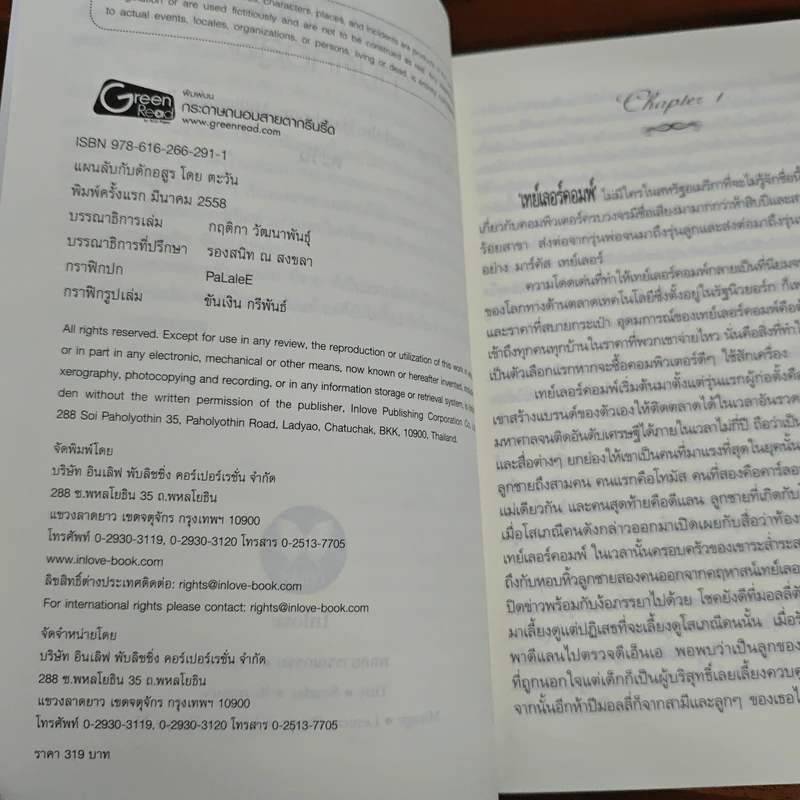 characters, places, and incidents are products of
or are used fictitiously and are not to be construed as real. Any
to actual events, locales, organizations, or persons, living or dead, is entirely
Green Read
พิมพ์บน
กระดาษถนอมสายตากรีนรี้ด
www.greenread.com
ISBN 978-616-266-291-1
แผนลับกับดักอสูร โดย ตะวัน
พิมพ์ครั้งแรก มีนาคม 2558
บรรณาธิการเล่ม กฤติกา วัฒนาพันธุ์
บรรณาธิการที่ปรึกษา รองสนิท ณ สงขลา
กราฟิกปก PaLaleE
กราฟิกรูปเล่ม ขันเงิน กรีพันธ์
All rights reserved. Except for use in any review, the reproduction or utilization of this work in
or in part in any electronic, mechanical or other means, now known or hereafter invented,
xerography, photocopying and recording, or in any information storage or retrieval system, is
den without the written permission of the publisher, Inlove Publishing Corporation Co.
288 Soi Paholyothin 35, Paholyothin Road, Ladyao, Chatuchak, BKK, 10900, Thailand.
จัดพิมพ์โดย
บริษัท อินเลิฟ พับลิชชิ่ง คอร์เปอร์เรชั่น จำกัด
288 ซ.พหลโยธิน 35 ถ.พหลโยธิน
แขวงลาดยาว เขตจตุจักร กรุงเทพฯ 10900
โทรศัพท์ 0-2930-3119, 0-2930-3120 โทรสาร 0-2513-7705
www.inlove-book.com
ลิขสิทธิ์ต่างประเทศติดต่อ: rights@inlove-book.com
For international rights please contact: rights@inlove-book.com
จัดจำหน่ายโดย
บริษัท อินเลิฟ พับลิชชิ่ง คอร์เปอร์เรชั่น จำกัด
288 ซ.พหลโยธิน 35 ถ.พหลโยธิน
แขวงลาดยาว เขตจตุจักร กรุงเทพฯ 10900
โทรศัพท์ 0-2930-3119, 0-2930-3120 โทรสาร 0-2513-7705
ราคา 319 บาท
Chapter 1
'เทย์เลอร์คอมพ์' ไม่มีใครในสหรัฐอเมริกาที่จะไม่รู้จักชื่อนี้
เกี่ยวกับคอมพิวเตอร์ครบวงจรมีชื่อเสียงมามากกว่าห้าสิบปีและ
ร้อยสาขา ส่งต่อจากรุ่นพ่อจนมาถึงรุ่นลูกและส่งต่อมาถึงรุ่น
อย่าง มาร์คัส เทย์เลอร์
ความโดดเด่นที่ทำให้เทย์เลอร์คอมพ์กลายเป็นที่นิยม
ของโลกทางด้านตลาดเทคโนโลยีซึ่งตั้งอยู่ในรัฐนิวยอร์ก
และราคาที่สบายกระเป๋า อุดมการณ์ของเทย์เลอร์คอมพ์คือ
เข้าถึงทุกคนทุกบ้านในราคาที่พวกเขาจ่ายไหว นั่นคือสิ่งที่
เป็นตัวเลือกแรกหากจะซื้อคอมพิวเตอร์ดีๆ ใช้สักเครื่อง
เทย์เลอร์คอมพ์เริ่มต้นมาตั้งแต่รุ่นแรกผู้ก่อตั้งคือ
เขาสร้างแบรนด์ของตัวเองให้ติดตลาดได้ในเวลาอันรวด
มหาศาลจนติดอันดับเศรษฐีได้ภายในเวลาไม่กี่ปี ถือว่าเป็น
และสื่อต่างๆ ยกย่องให้เขาเป็นคนที่มาแรงที่สุดในยุคนั้น
ลูกชายถึงสามคน คนแรกคือโทมัส คนที่สองคือคาร์ลอ
แม่เดียวกัน และคนสุดท้ายคือดีแลน ลูกชายที่เกิดกับโ
เมื่อโสเภณีคนดังกล่าวออกมาเปิดเผยกับสื่อว่าท้อง
เทย์เลอร์คอมพ์ ในเวลานั้นครอบครัวของเขาระส่ำระส
ถึงกับหอบหิ้วลูกชายสองคนออกจากคฤหาสน์เทย์เลอ
ปิดข่าวพร้อมกับง้อภรรยาไปด้วย โชคยังดีที่มอลลี่
มาเลี้ยงดูแต่ปฏิเสธที่จะเลี้ยงดูโสเภณีคนนั้น เมื่อ
พาดีแลนไปตรวจดีเอ็นเอ พอพบว่าเป็นลูกของ
ที่ถูกนอกใจแต่เด็กก็เป็นผู้บริสุทธิ์เลยเลี้ยงควบ
จากนั้นอีกห้าปีมอลลี่ก็จากสามีและลูกๆ ของเธอไ